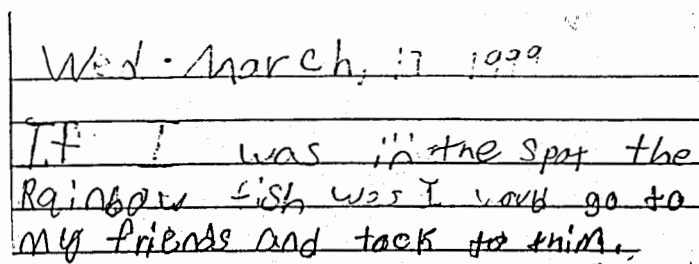 Wed. March, 17 1999
If I was in the spot the
Rainbow fish was I would go to
my friends and tack to thim.